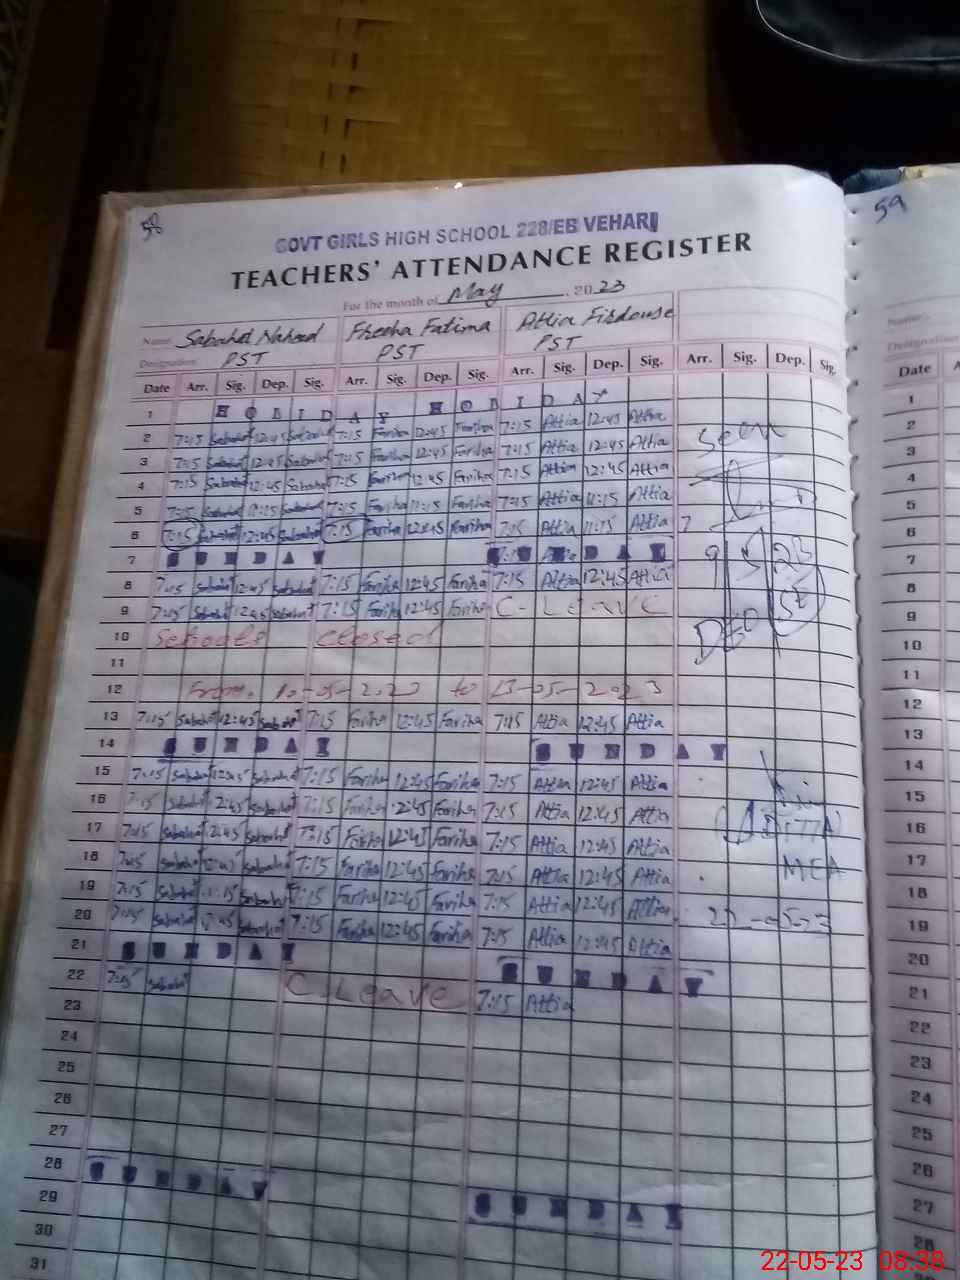 58
59
GOVT GIRLS HIGH SCHOOL 228/EB VEHARI
TEACHERS' ATTENDANCE REGISTER
For the month of May, 2023
Name Sabahat Naheed Freeha Fatima Attia Firdouse
Designation PST PST PST
Date Arr. Sig. Dep. Sig. Arr. Sig. Dep. Sig. Arr. Sig. Dep. Sig. Arr. Sig. Dep. Sig.
1 H O L I D A Y H O L I D A Y
2 7:15 Sabahat 12:45 Sabahat 7:15 Fariha 12:45 Fariha 7:15 Attia 12:45 Attia
3 7:15 Sabahat 12:45 Sabahat 7:15 Fariha 12:45 Fariha 7:15 Attia 12:45 Attia
4 7:15 Sabahat 12:45 Sabahat 7:15 Fariha 12:45 Fariha 7:15 Attia 12:45 Attia
5 7:15 Sabahat 11:15 Sabahat 7:15 Fariha 11:15 Fariha 7:15 Attia 11:15 Attia
6 7:15 Sabahat 12:45 Sabahat 7:15 Fariha 12:45 Fariha 7:15 Attia 11:15 Attia
7 S U N D A Y S U N D A Y
8 7:15 Sabahat 12:45 Sabahat 7:15 Fariha 12:45 Fariha 7:15 Attia 12:45 Attia
9 7:15 Sabahat 12:45 Sabahat 7:15 Fariha 12:45 Fariha C-Leave
10 Schools closed
11
12 From. 10-05-2023 to 13-05-2023
13 7:15 Sabahat 12:45 Sabahat 7:15 Fariha 12:45 Fariha 7:15 Attia 12:45 Attia
14 S U N D A Y S U N D A Y
15 7:15 Sabahat 12:45 Sabahat 7:15 Fariha 12:45 Fariha 7:15 Attia 12:45 Attia
16 7:15 Sabahat 12:45 Sabahat 7:15 Fariha 12:45 Fariha 7:15 Attia 12:45 Attia
17 7:15 Sabahat 12:45 Sabahat 7:15 Fariha 12:45 Fariha 7:15 Attia 12:45 Attia
18 7:15 Sabahat Sabahat 7:15 Fariha 12:45 Fariha 7:15 Attia 12:45 Attia
19 7:15 Sabahat Sabahat 7:15 Fariha 12:45 Fariha 7:15 Attia 12:45 Attia
20 7:15 Sabahat 12:45 Sabahat 7:15 Fariha 12:45 Fariha 7:15 Attia 12:45 Attia
21 S U N D A Y S U N D A Y
22 7:15 Sabahat C.Leave 7:15 Attia
23
24
25
26
27
28 S U N D A Y S U N D A Y
29
30
31
Seen
9/5/23
DEO SE
MEA
22-05-23
Name:
Designation
Date
1
2
3
4
5
6
7
8
9
10
11
12
13
14
15
16
17
18
19
20
21
22
23
24
25
26
27
28
22-05-23 08:38